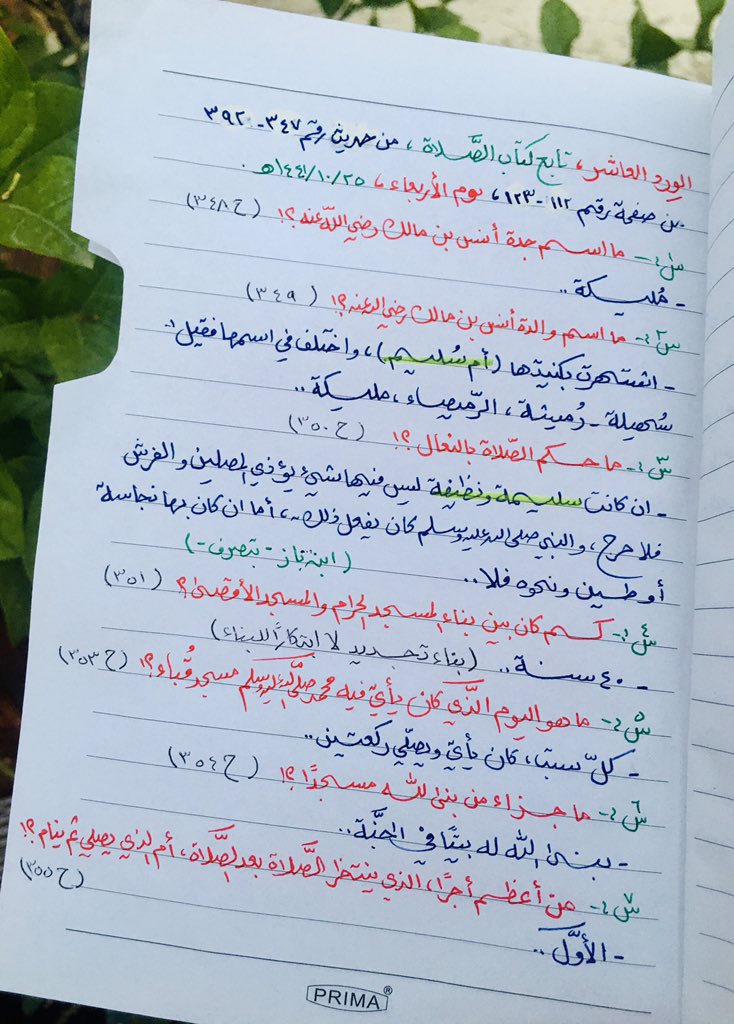 الورد العاشر، تابع كتاب الصَّلاة، من حديث رقم ٣٤٧-٣٩٢
من صفحة رقم ١١٢-١٢٣، يوم الأربعاء، ١٤٤١/١٠/٢٥هـ.
س١:- ما اسم جدة أنس بن مالك رضي الله عنه؟! (ح٣٤٨)
- مُليكة..
س٢:- ما اسم والدة أنس بن مالك رضي الله عنه؟! (٣٤٩)
- اشتهرت بكنيتها (أم سُليم)، واختلف في اسمها فقيل:-
سُهيلة - رُميثة، الرّميصاء، مليكة..
س٣:- ما حكم الصّلاة بالنعال؟! (ح٣٥٠)
- ان كانت سليمة ونظيفة ليس فيها شيئ يؤذي المصلين والفرش
فلا حرج، والنبي صلى الله عليه وسلم كان يفعل ذلك، أما ان كان بها نجاسة
أو طين ونحوه فلا.. (ابن باز - بتصرف -)
س٤:- كم كان بين بناء المسجد الحرام والمسجد الأقصى؟! (٣٥١)
- ٤٠ سنة.. (بناء تجديد لا ابتكارًا للبناء)
س٥:- ما هو اليوم الَّذي كان يأتي فيه محمد صلَّى الله عليه وسلم مسجد قُباء؟! (ح٣٥٣)
- كلّ سبت، كان يأتي ويصلّي ركعتين..
س٦:- ما جزاء من بنى لله مسجدًا؟! (ح٣٥٤)
- بنى الله له بيتًا في الجنَّة..
س٧:- من أعظم أجرًا، الذي ينتظر الصَّلاة بعد الصَّلاة، أم الذي يصلي ثم ينام؟!
(ح٣٥٥)
- الأوَّل..
PRIMA®